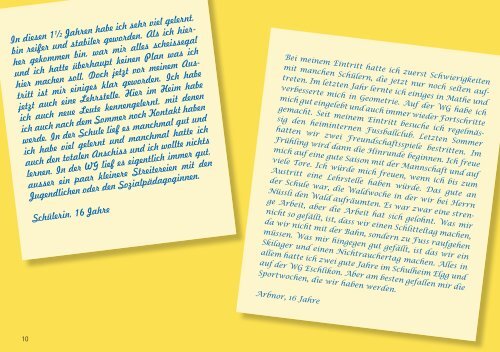 In diesen 1½ Jahren habe ich sehr viel gelernt,
bin reifer und stabiler geworden. Als ich hier-
her gekommen bin, war mir alles scheissegal
und ich hatte überhaupt keinen Plan was ich
hier machen soll. Doch jetzt vor meinem Aus-
tritt ist mir einiges klar geworden. Ich habe
jetzt auch eine Lehrstelle. Hier im Heim habe
ich auch neue Leute kennengelernt, mit denen
ich auch nach dem Sommer noch Kontakt haben
werde. In der Schule lief es manchmal gut und
ich habe viel gelernt und manchmal hatte ich
auch den totalen Anschiss und ich wollte nichts
lernen. In der WG lief es eigentlich immer gut,
ausser ein paar kleinere Streitereien mit den
Jugendlichen oder den Sozialpädagoginnen.
Schülerin, 16 Jahre
Bei meinem Eintritt hatte ich zuerst Schwierigkeiten
mit manchen Schülern, die jetzt nur noch selten auf-
treten. Im letzten Jahr lernte ich einiges in Mathe und
verbesserte mich in Geometrie. Auf der WG habe ich
mich gut eingelebt und auch immer wieder Fortschritte
gemacht. Seit meinem Eintritt besuche ich regelmäs-
sig den heiminternen Fussballclub. Letzten Sommer
hatten wir zwei Freundschaftsspiele bestritten. Im
Frühling wird dann die Hinrunde beginnen. Ich freue
mich auf eine gute Saison mit der Mannschaft und auf
viele Tore. Ich würde mich freuen, wenn ich bis zum
Austritt eine Lehrstelle haben würde. Das gute an
der Schule war, die Waldwoche in der wir bei Herrn
Nüssli den Wald aufräumten. Es war zwar eine stren-
ge Arbeit, aber die Arbeit hat sich gelohnt. Was mir
nicht so gefällt, ist, dass wir einen Schlitteltag machen,
da wir nicht mit der Bahn, sondern zu Fuss raufgehen
müssen. Was mir hingegen gut gefällt, ist das wir ein
Skilager und einen Nichtrauchertag machen. Alles in
allem hatte ich zwei gute Jahre im Schulheim Elgg und
auf der WG Eschlikon. Aber am besten gefallen mir die
Sportwochen, die wir haben werden.
Arbnor, 16 Jahre
10